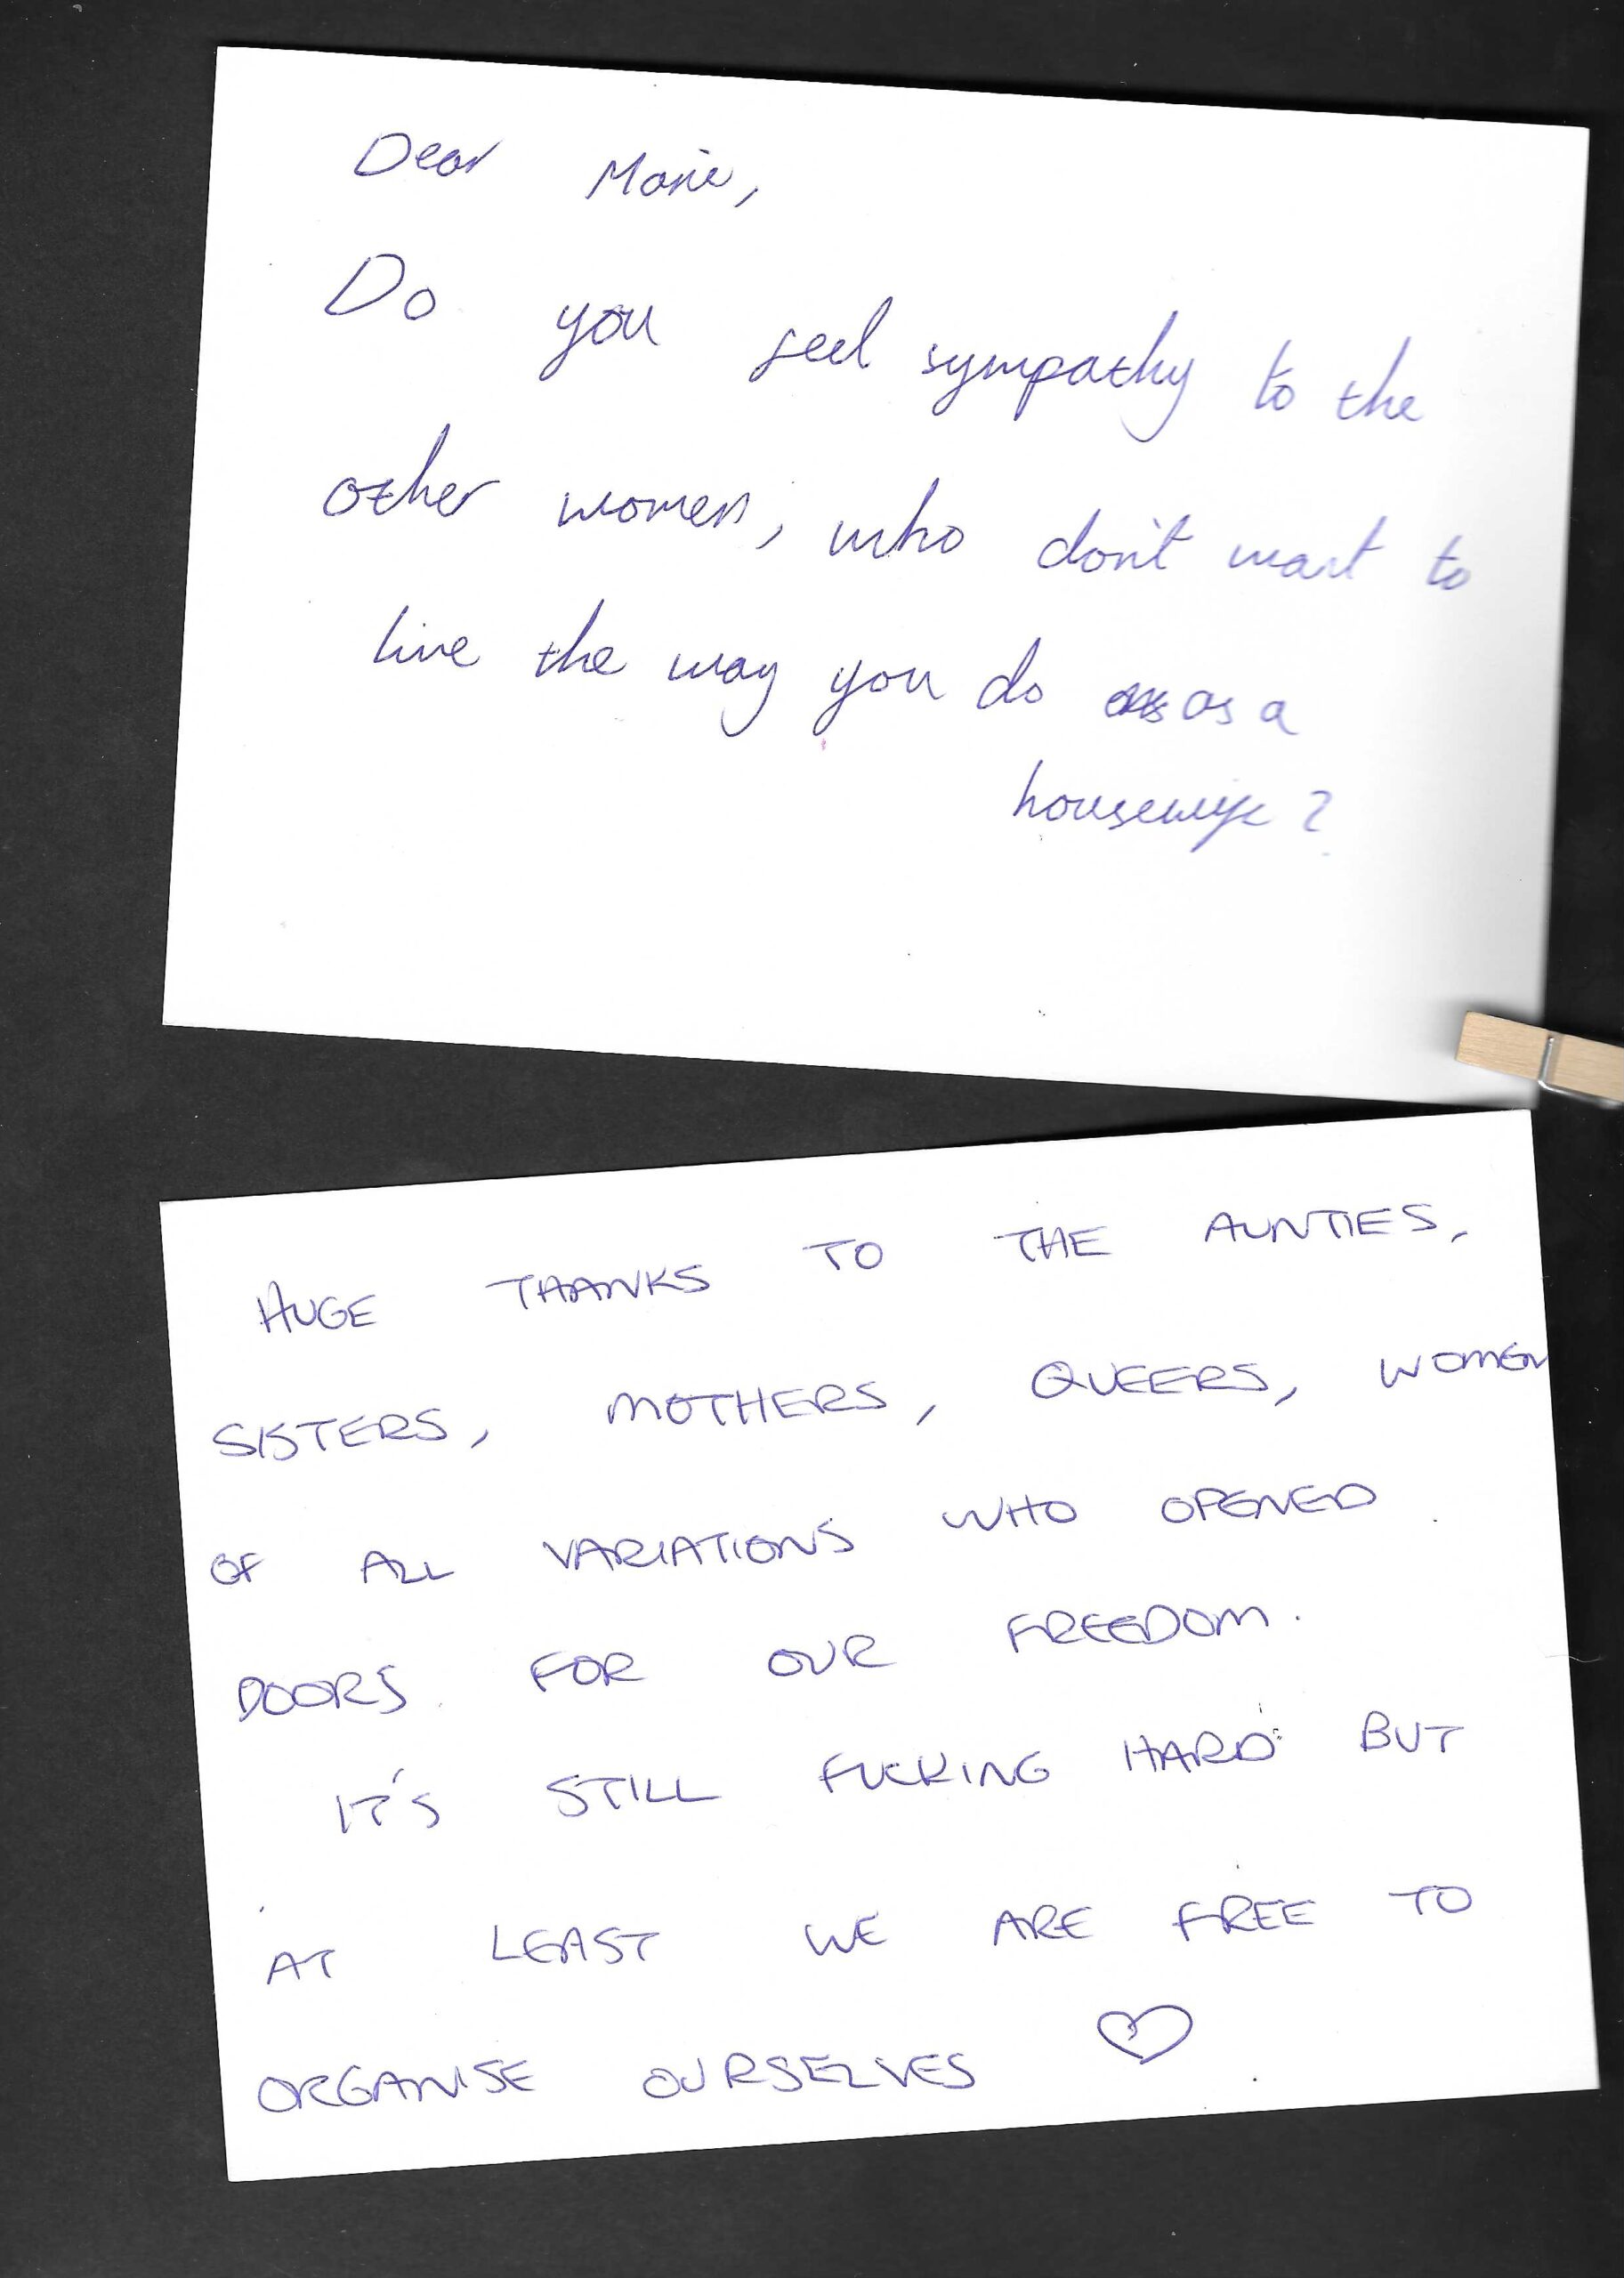 Dear Marie,
Do you feel sympathy to the
other women, who don't want to
live the way you do as a
housewife?
HUGE THANKS TO THE AUNTIES,
SISTERS, MOTHERS, QUEERS, WOMEN
OF ALL VARIATIONS WHO OPENED
DOORS FOR OUR FREEDOM.
IT'S STILL FUCKING HARD BUT
AT LEAST WE ARE FREE TO
ORGANISE OURSELVES ♡